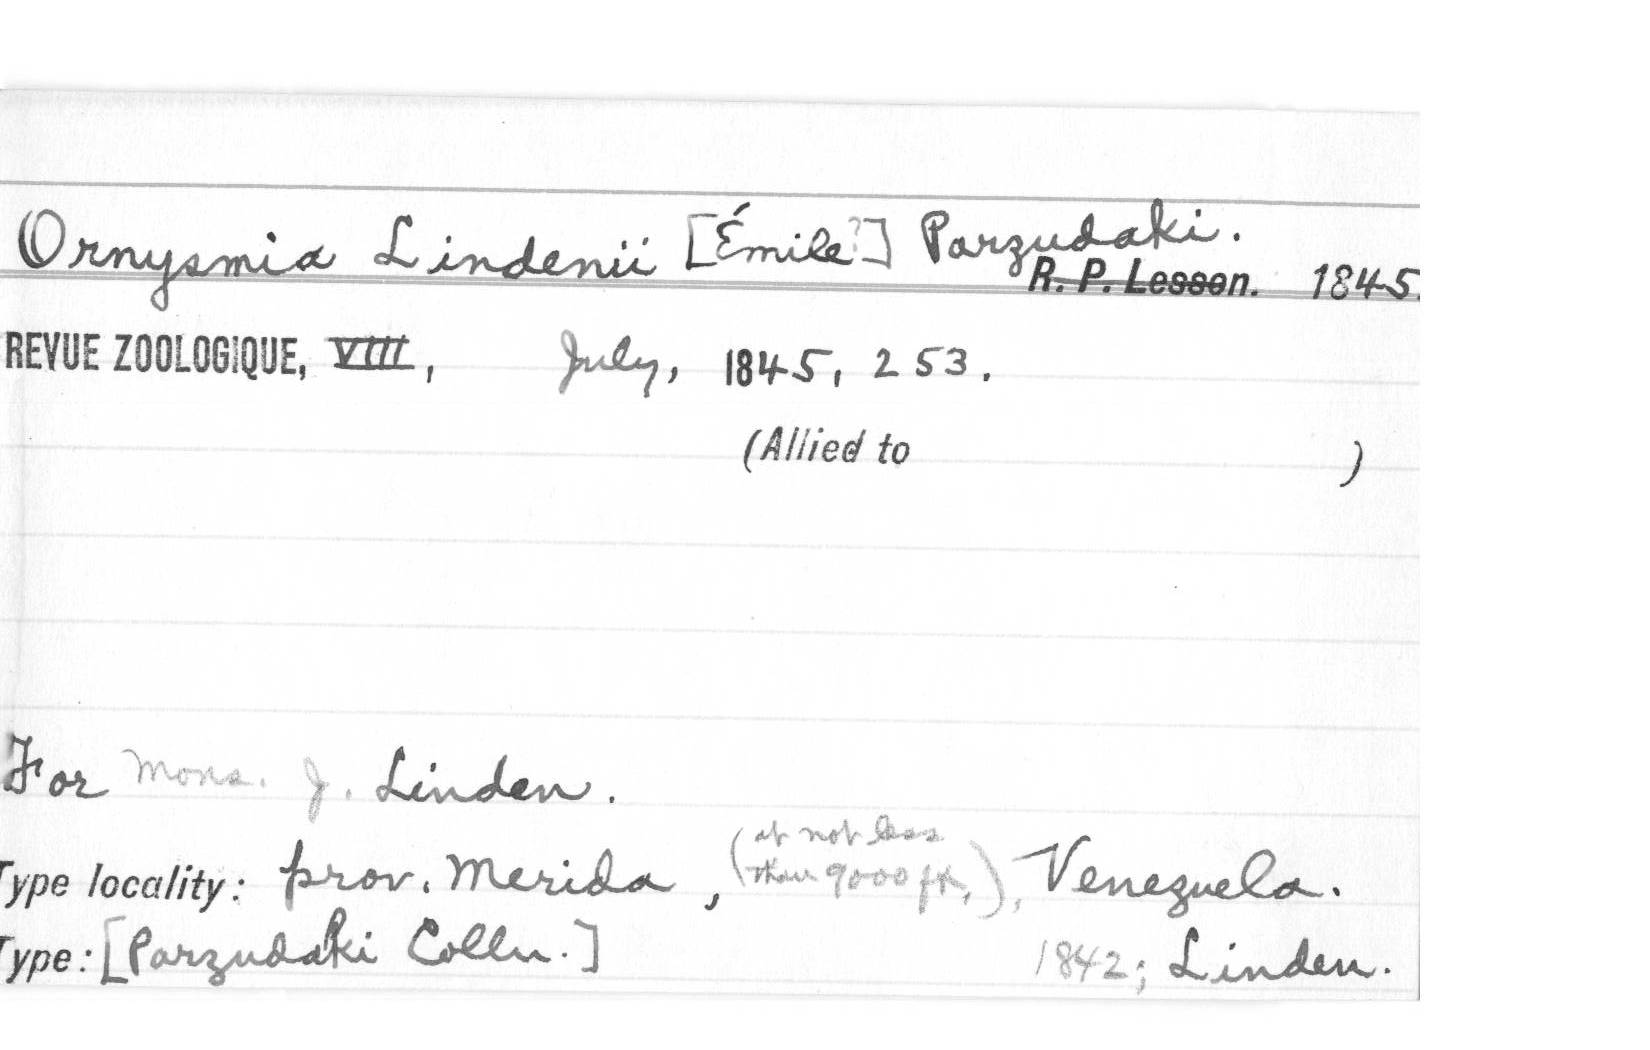 Ornysmia Lindenii [Émile?] Parzudaki.
R. P. Lesson. 1845.
REVUE ZOOLOGIQUE, VIII, July, 1845, 253.
(Allied to )
For Mons. J. Linden.
(at not less
Type locality: prov. Merida, than 9000 ft.,), Venezuela.
Type: [Parzudaki Colln.] 1842; Linden.